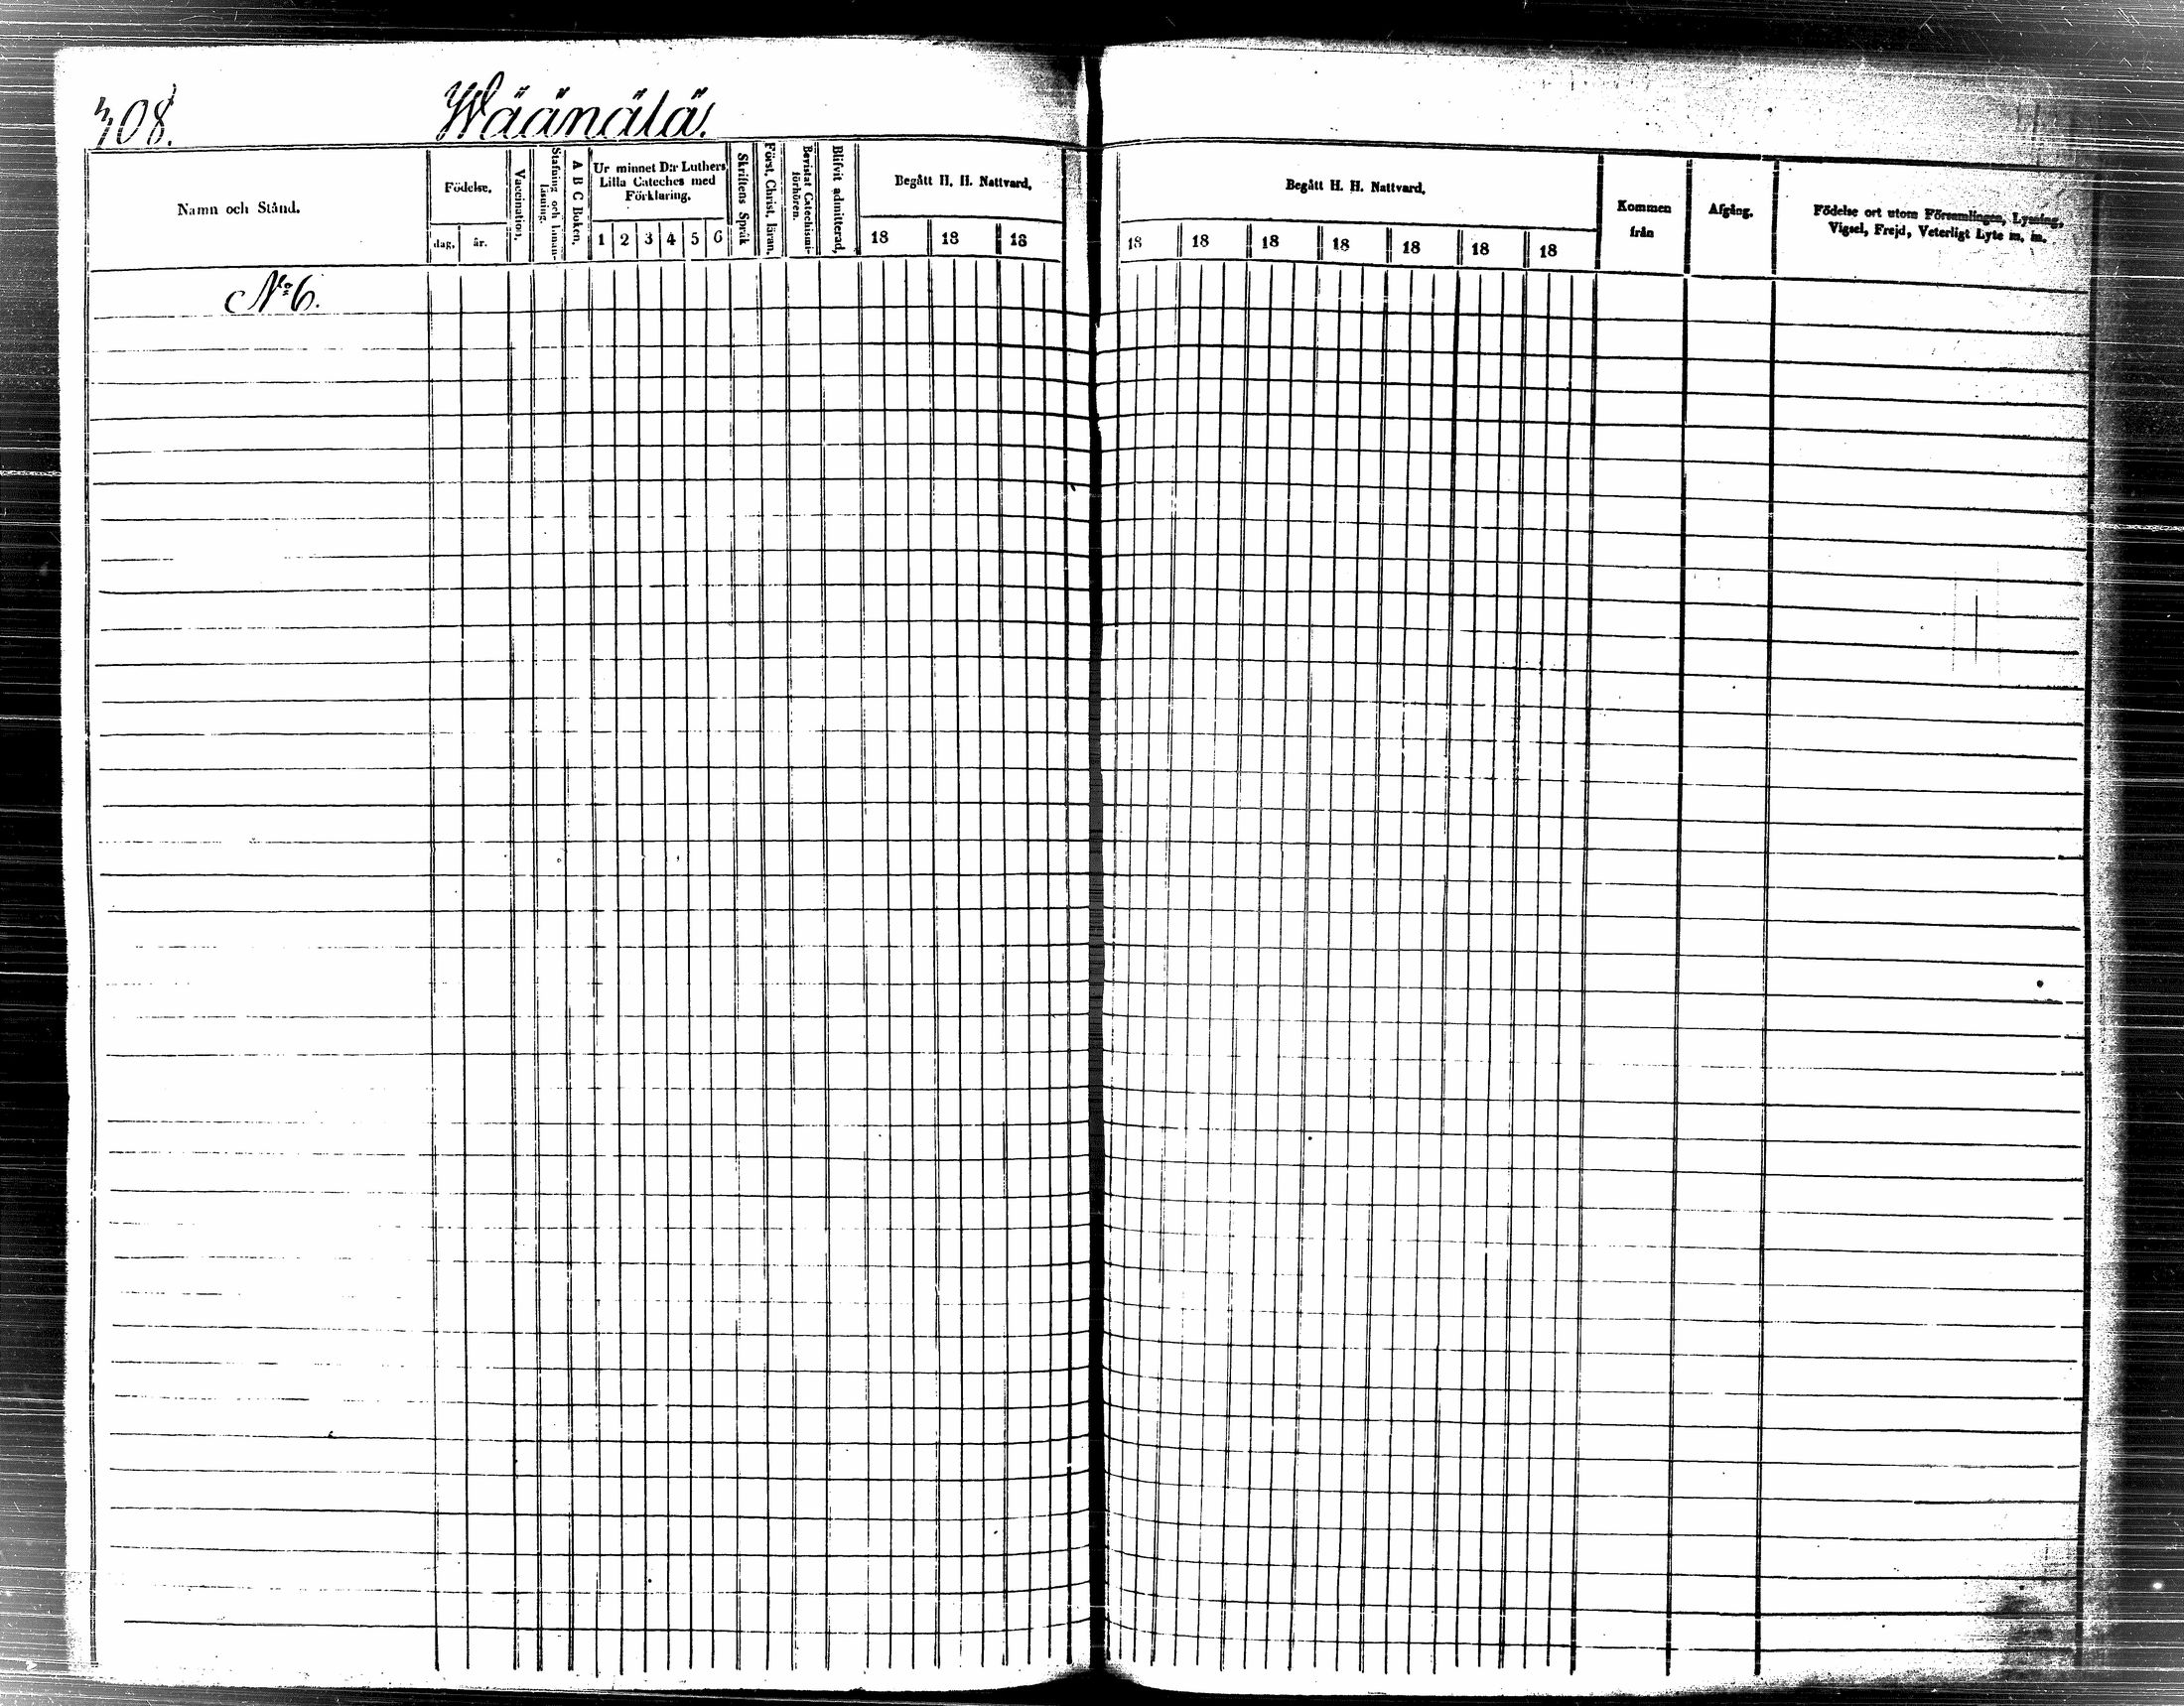 308. Wäänälä.
Namn och Stånd.
Födelse.
dag. år.
Vaccination.
Stafning och Innan-
läsning.
A B C Boken.
Ur minnet D:r Luthers
Lilla Cateches med
Förklaring.
1 2 3 4 5 6
Skriftens Språk
Först. Christ. läran.
Bevistat Catechismi-
förhören.
Blifvit admitterad.
Begått H. H. Nattvard.
18 18 18
Begått H. H. Nattvard.
18 18 18 18 18 18 18
Kommen
från
Afgång.
Födelse ort utom Församlingen, Lysning,
Vigsel, Frejd, Veterligt Lyte m. m.
N:o 6.